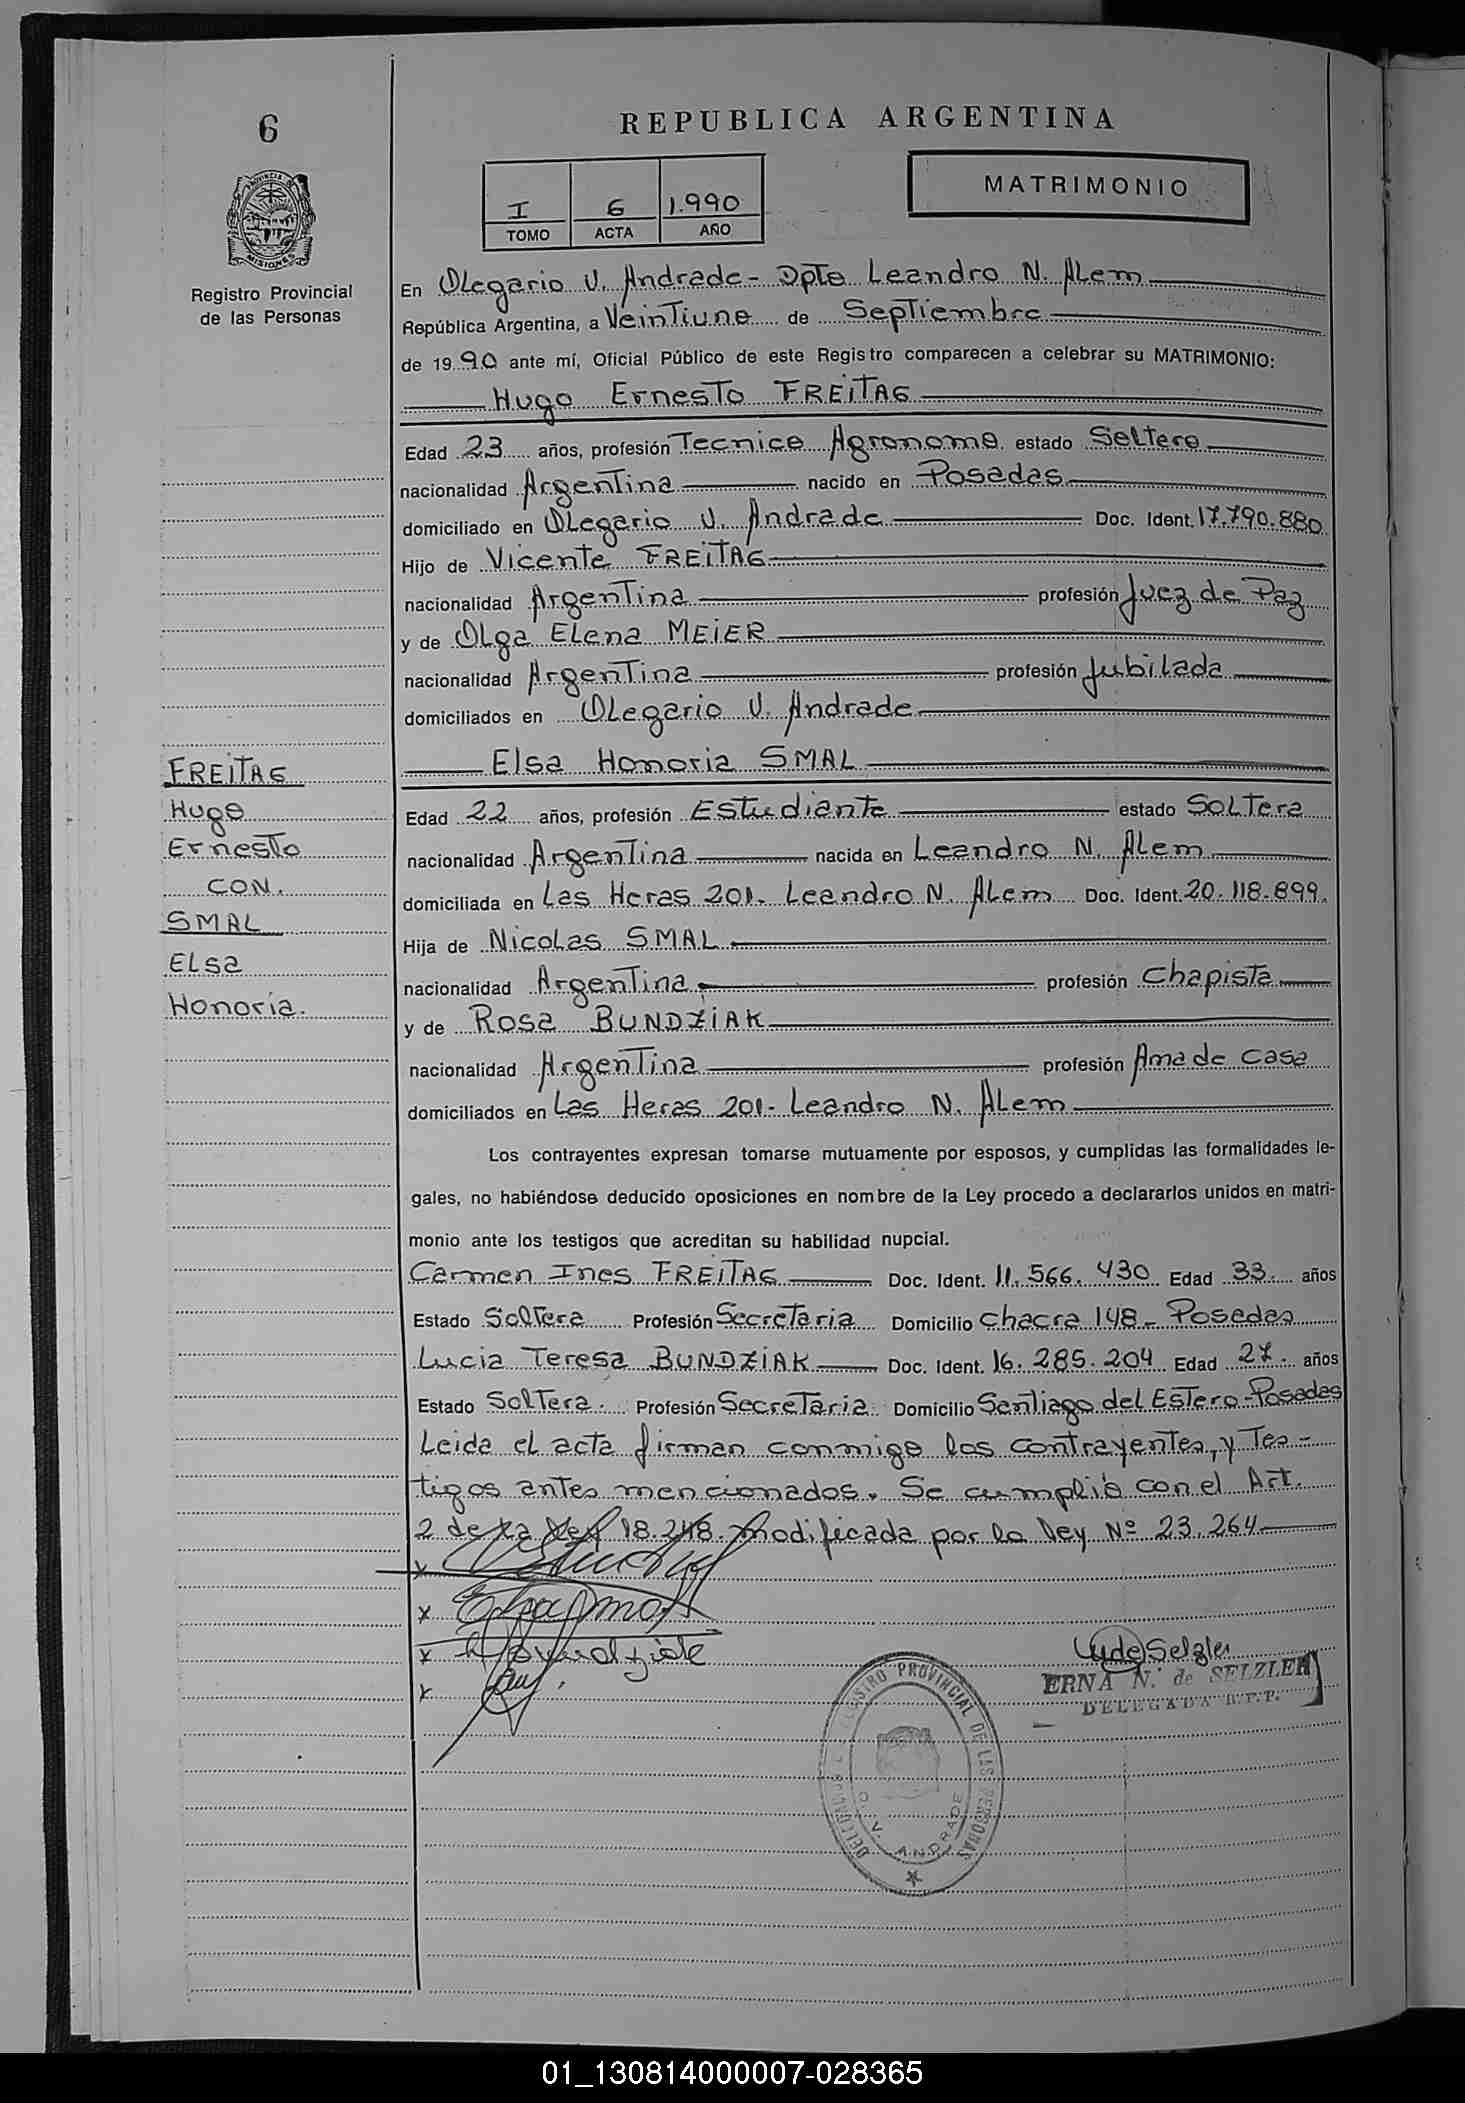 6
REPUBLICA ARGENTINA
PROVINCIA DE MISIONES
Registro Provincial
de las Personas
I 6 1.990
TOMO ACTA AÑO
MATRIMONIO
En OLegario V. Andrade - Dpto Leandro N. ALem
República Argentina, a VeinTiuno de SepTiembre
de 1990 ante mí, Oficial Público de este Registro comparecen a celebrar su MATRIMONIO:
Hugo ErnesTo FREiTAG
Edad 23 años, profesión Tecnico Agronomo estado SoLtero
nacionalidad ArgenTina nacido en Posadas
domiciliado en OLegario V. Andrade Doc. Ident. 17.790.880
Hijo de Vicente FREiTAG
nacionalidad ArgenTina profesión Juez de Paz
y de OLga ELena MEiER
nacionalidad ArgenTina profesión JubiLada
domiciliados en OLegario V. Andrade
Elsa Honoria SMAL
Edad 22 años, profesión Estudiante estado SoLTera
nacionalidad ArgenTina nacida en Leandro N. ALem
domiciliada en Las Heras 201. Leandro N. ALem Doc. Ident. 20.118.899.
Hija de NicoLas SMAL
nacionalidad ArgenTina profesión Chapista
y de Rosa BUNDZiAK
nacionalidad ArgenTina profesión Ama de casa
domiciliados en Las Heras 201. Leandro N. ALem
FREiTAG
Hugo
ErnesTo
CON.
SMAL
ELsa
Honoria.
Los contrayentes expresan tomarse mutuamente por esposos, y cumplidas las formalidades le-
gales, no habiéndose deducido oposiciones en nombre de la Ley procedo a declararlos unidos en matri-
monio ante los testigos que acreditan su habilidad nupcial.
Carmen Ines FREiTAG Doc. Ident. 11.566.430 Edad 33. años
Estado SolTera Profesión SecreTaria Domicilio chacra 148 - Posadas
Lucia Teresa BUNDZiAK Doc. Ident. 16.285.204 Edad 27. años
Estado SolTera. Profesión SecreTaria Domicilio SanTiago del ESTero - Posadas
Leida el acta firman conmigo los contrayentes, y Tes-
tigos antes mencionados. Se cumplió con el Art.
2 de la Ley 18.248. modificada por la ley Nº 23.264
x
x
x
x
ERNA N. de SELZLER
DELEGADA R.P.P.
DELEGACION REGISTRO PROVINCIAL DE LAS PERSONAS
O. V. ANDRADE
01_130814000007-028365